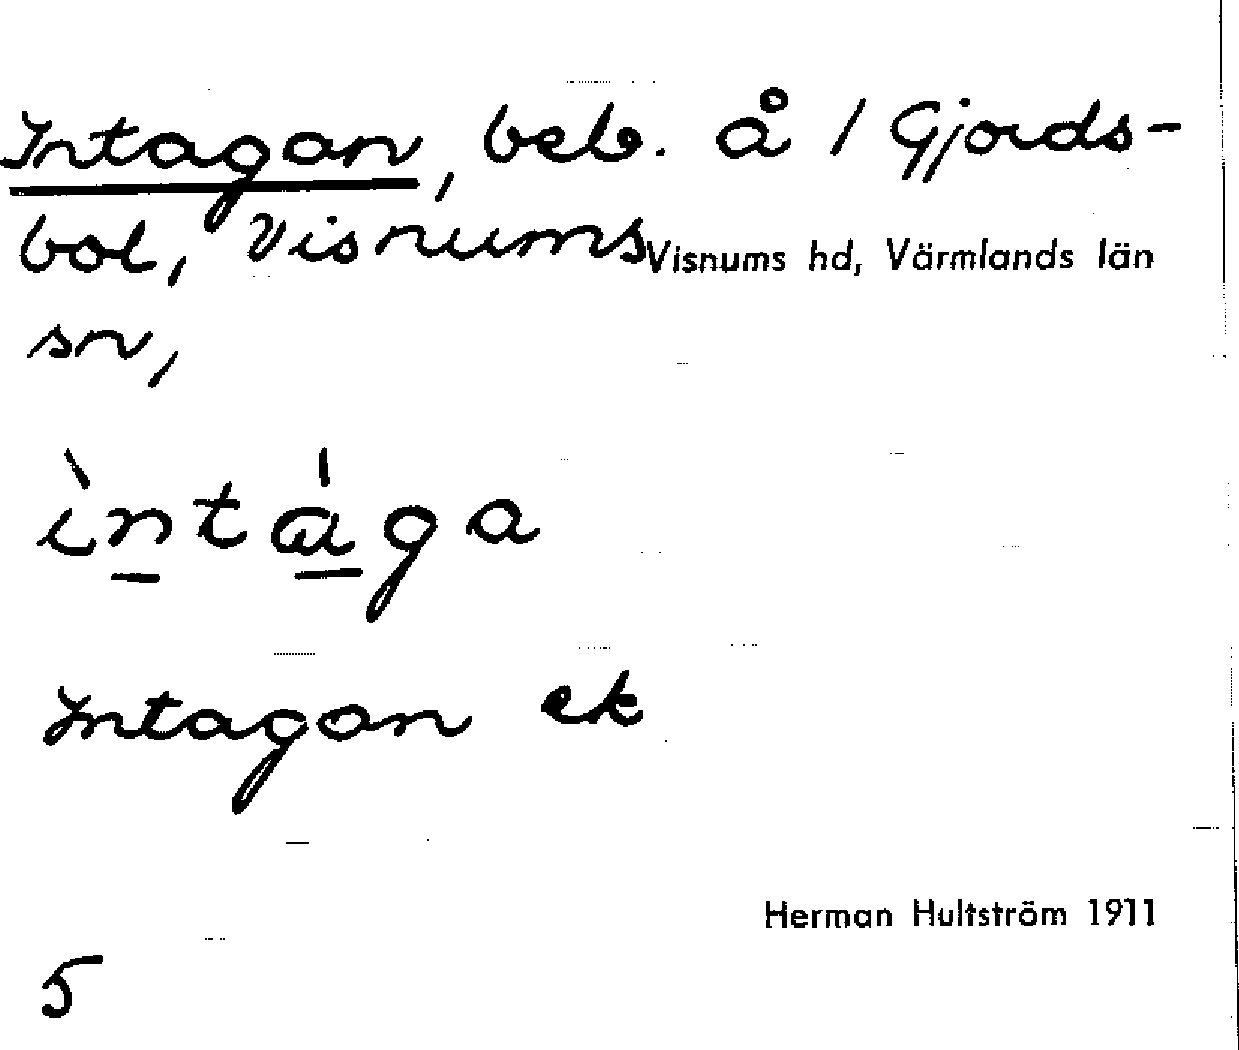 Intagan, beb. å 1 Gjords-
bol, Visnums Visnums hd, Värmlands län
sn,
ìntàga
Intagan ek
Herman Hultström 1911
5